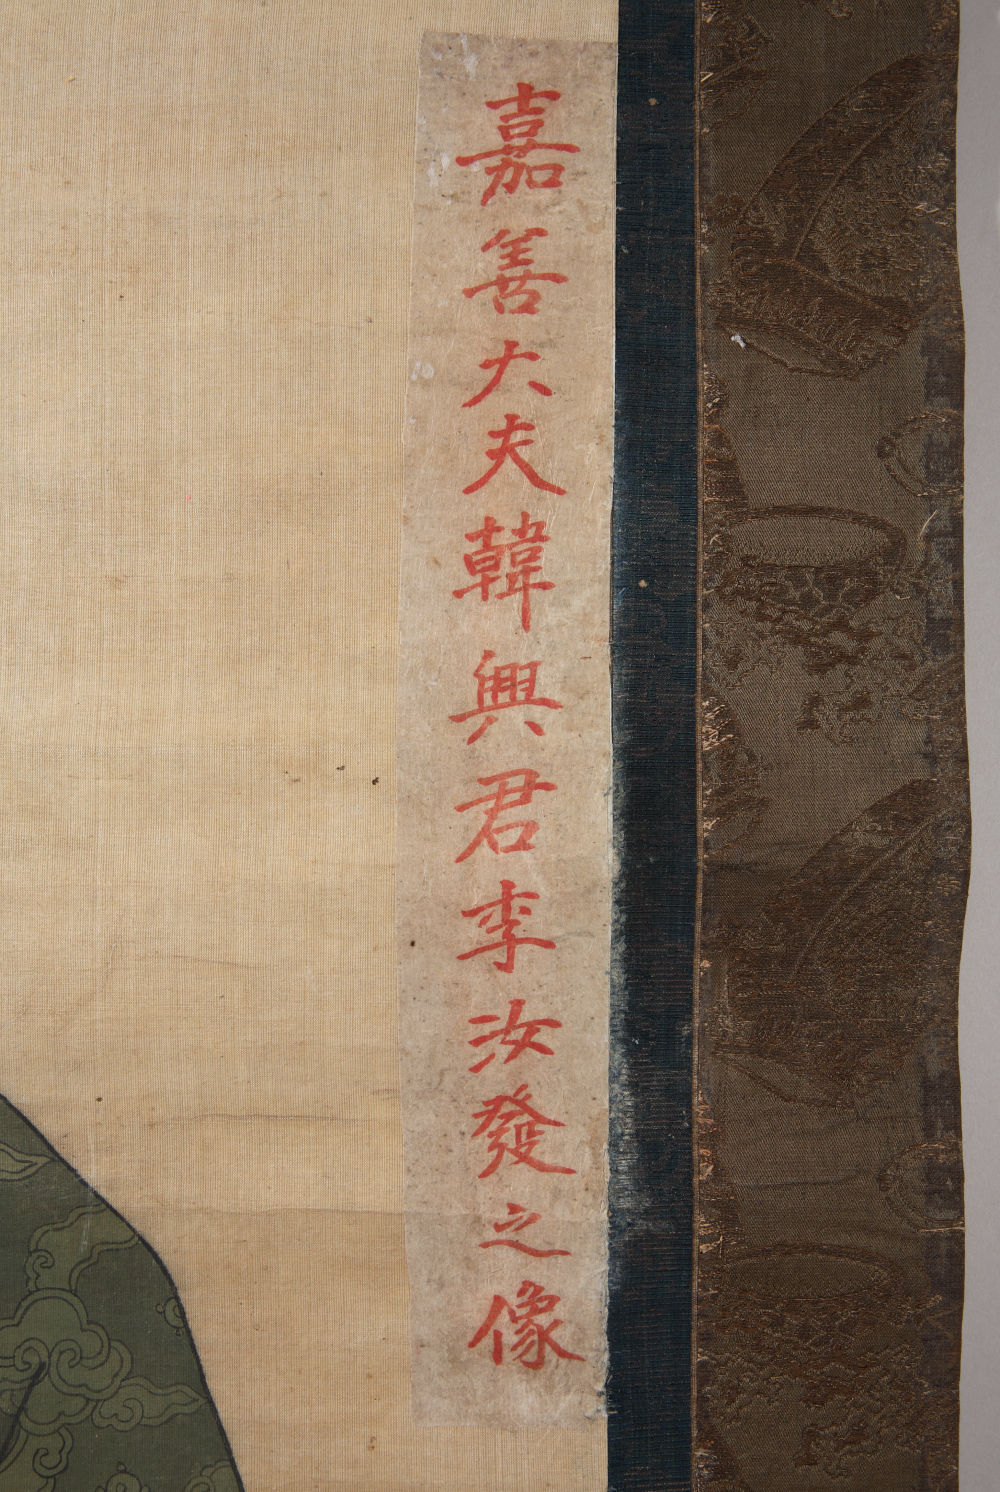 嘉善大夫韓興君李汝發之像